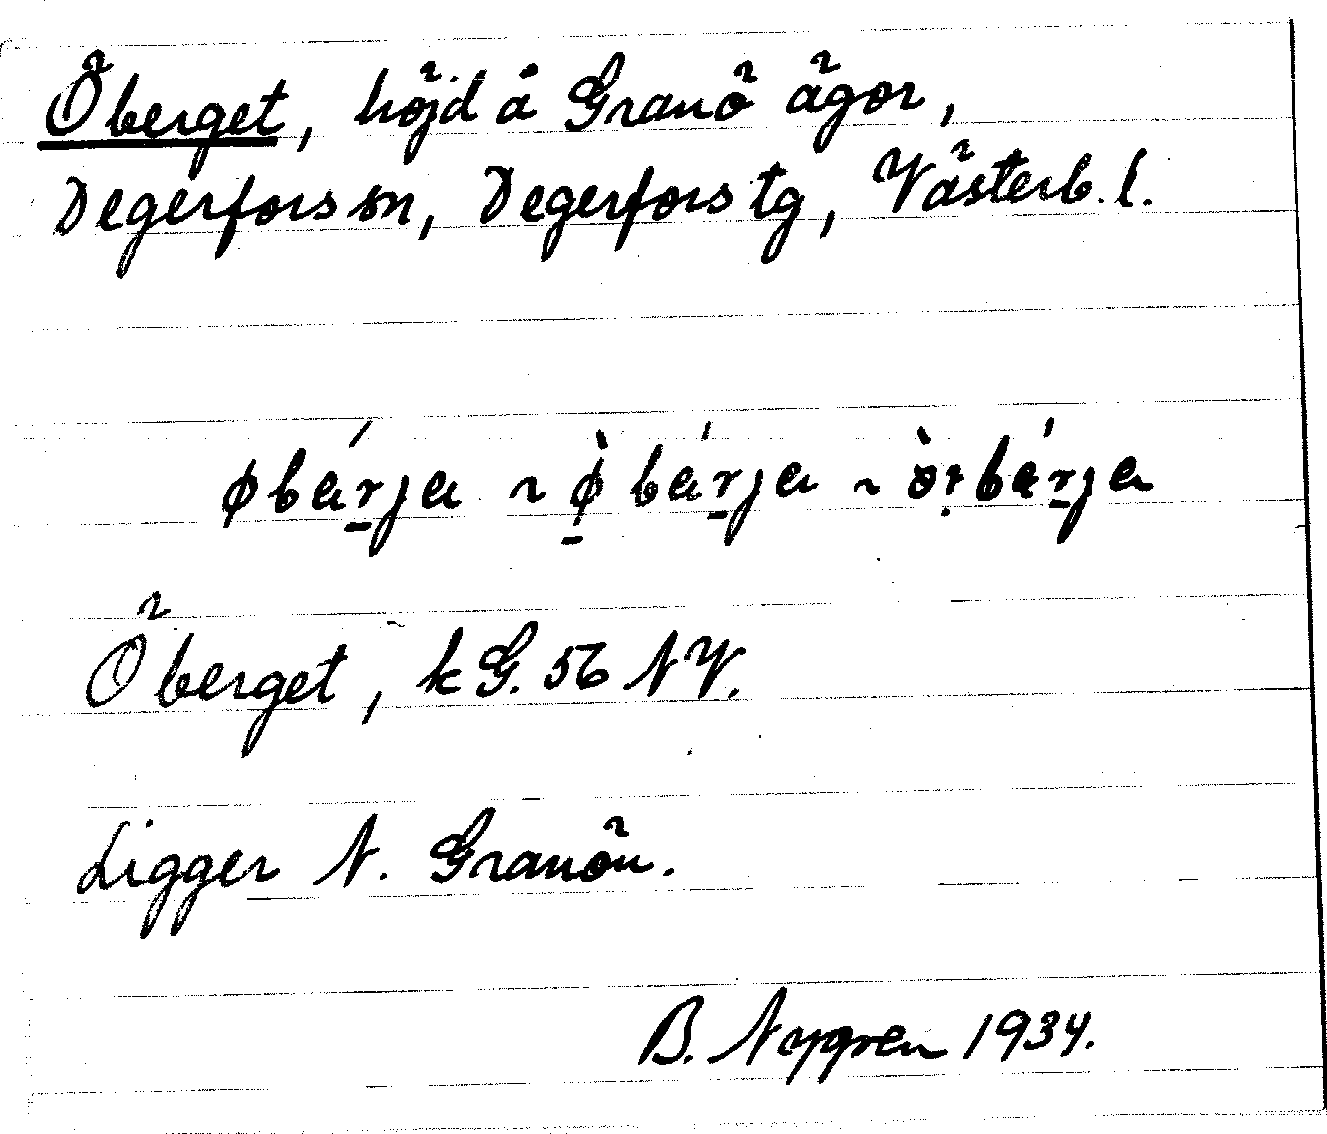 Öberget, höjd å Granö ägor,
Degerfors sn, Degerfors tg, Västerb. l.
Öberget, kG. 56 NV.
Ligger N. Granön.
B. Nygren 1934.